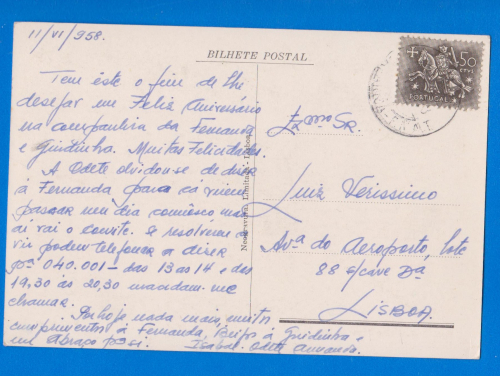 11/VI/958.
BILHETE POSTAL
50
CTVS.
PORTUGAL
Tem êste o fim de lhe
desejar um Feliz Aniversário
na companhia da Fernanda
e Guidinha. Muitas Felicidades.
A Odete olvidou-se de dizer
á Fernanda para cá virem
passar um dia comnosco mas
ai vai o convite. Se resolverem
vir podem telefonar a dizer
pª 040.001 - das 13 às 14 e das
19,30 às 20,30 mandam-me
chamar.
Por hoje nada mais, muitos
cumprimentos á Fernanda, Beijos á Guidinha e
um abraço para si. Isabel Odete Armanda.
Exmº Sr.
Luiz Verissimo
Avª do Aeroporto, lote
88 s/cave Dª
LISBOA